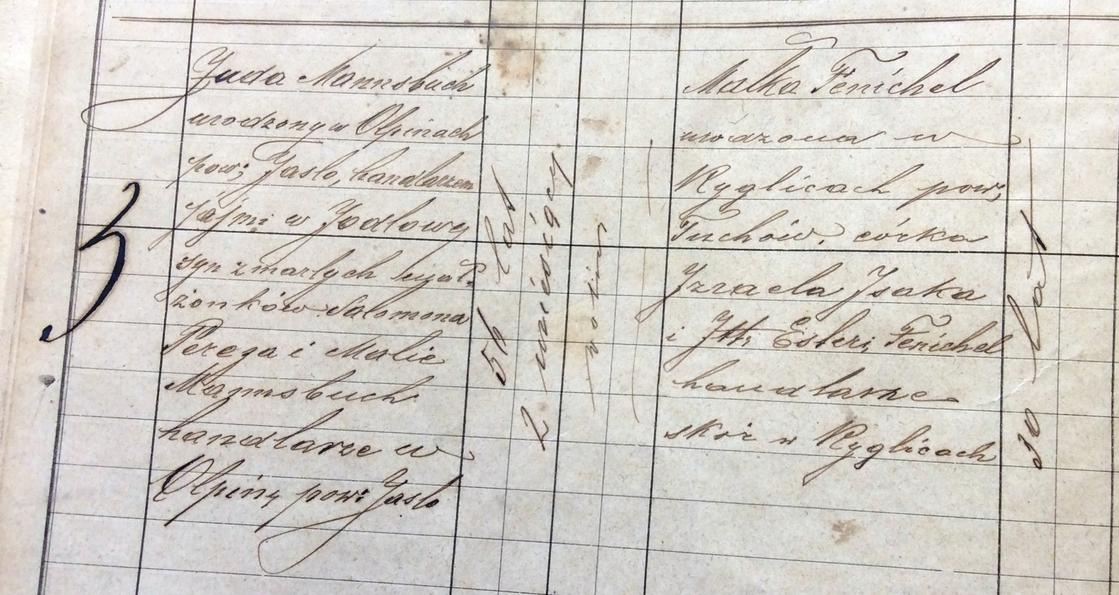 3
Juda Mannsbach
urodzony w Olpinach
pow: Jaslo, handlarzem
w Jodlowy
syn zmarlych
żonków Salomona
Perega i Malie
Mannsbuch
handlarze w
Olpiny pow: Jaslo
56 lat
2 miesięcy
Malka Fenichel
urodzona w
Ryglicach pow:
Tuchów, córka
Izraela Isaka
i Itti Esteri Fenichel
handlarze
skór w Ryglicach
30 lat